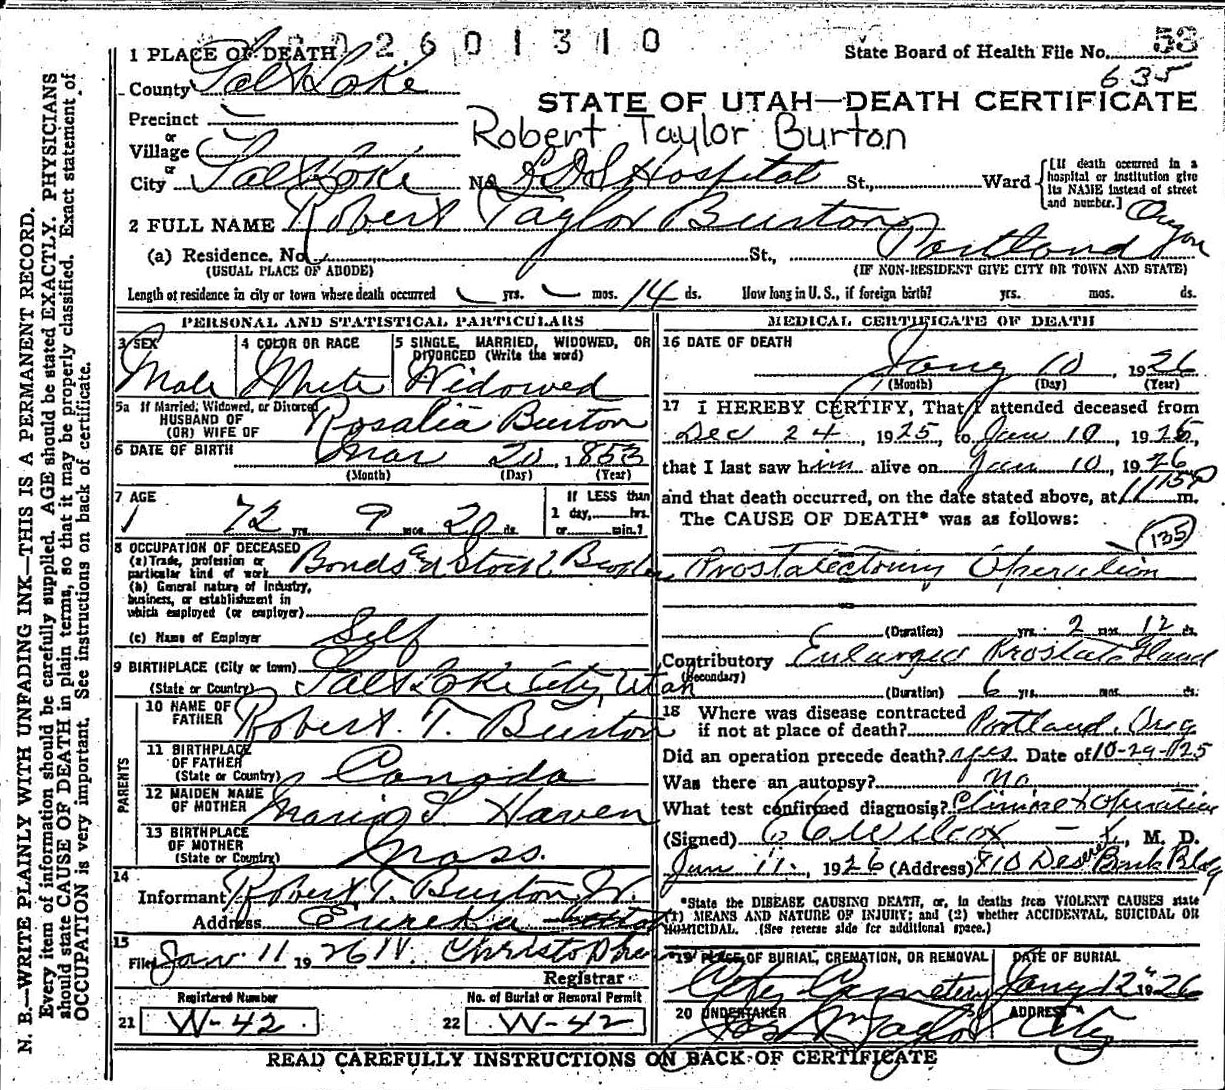 2601310
58
1 PLACE OF DEATH State Board of Health File No.
635
County Salt Lake
STATE OF UTAH—DEATH CERTIFICATE
Precinct
Robert Taylor Burton
or
Village
or
City Salt Lake No. L D S Hospital St., Ward
[If death occurred in a hospital or institution give its NAME instead of street and number.]
2 FULL NAME Robert Taylor Burton
(a) Residence. No. St., Portland Oregon
(USUAL PLACE OF ABODE) (IF NON-RESIDENT GIVE CITY OR TOWN AND STATE)
Length of residence in city or town where death occurred yrs. mos. 14 ds. How long in U. S., if foreign birth? yrs. mos. ds.
PERSONAL AND STATISTICAL PARTICULARS
3 SEX 4 COLOR OR RACE 5 SINGLE, MARRIED, WIDOWED, OR DIVORCED (Write the word)
Male White Widowed
5a If Married, Widowed, or Divorced
HUSBAND OF
(OR) WIFE OF Rosalia Burton
6 DATE OF BIRTH Mar 20 1853
(Month) (Day) (Year)
7 AGE If LESS than
1 day, hrs.
72 yrs. 9 mos. 20 ds. or min.?
8 OCCUPATION OF DECEASED
(a) Trade, profession or
particular kind of work Bonds & Stock Broker
(b) General nature of industry,
business, or establishment in
which employed (or employer)
(c) Name of Employer Self
9 BIRTHPLACE (City or town)
(State or Country) Salt Lake City, Utah
PARENTS
10 NAME OF
FATHER Robert. T. Burton
11 BIRTHPLACE
OF FATHER
(State or Country) Canada
12 MAIDEN NAME
OF MOTHER Maria S. Haven
13 BIRTHPLACE
OF MOTHER
(State or Country) Mass.
14
Informant Robert T. Burton Jr.
Address Eureka Utah
15
Filed Jan 11 1926 Christopherson
Registrar
Registered Number No. of Burial or Removal Permit
21 W-42 22 W-42
MEDICAL CERTIFICATE OF DEATH
16 DATE OF DEATH
Jany 10, 1926
(Month) (Day) (Year)
17 I HEREBY CERTIFY, That I attended deceased from
Dec 24, 1925, to Jan 10, 1926,
that I last saw him alive on Jan 10, 1926
and that death occurred, on the date stated above, at 1115P m.
The CAUSE OF DEATH* was as follows:
135
Prostatectomy Operation
(Duration) yrs. 2 mos. 12 ds.
Contributory Enlarged Prostate Gland
(Secondary)
(Duration) 6 yrs. mos. ds.
18 Where was disease contracted
if not at place of death? Portland. Oreg
Did an operation precede death? yes Date of 10-29-1925
Was there an autopsy? No
What test confirmed diagnosis? Clinical & Operation
(Signed) Wilcox, M. D.
Jan 11., 1926 (Address) 810 Deseret Bank Bldg
*State the DISEASE CAUSING DEATH, or, in deaths from VIOLENT CAUSES state
(1) MEANS AND NATURE OF INJURY; and (2) whether ACCIDENTAL, SUICIDAL OR
HOMICIDAL. (See reverse side for additional space.)
19 PLACE OF BURIAL, CREMATION, OR REMOVAL DATE OF BURIAL
City Cemetery Jany 12" 1926
20 UNDERTAKER ADDRESS
Taylor City
READ CAREFULLY INSTRUCTIONS ON BACK OF CERTIFICATE
N. B.—WRITE PLAINLY WITH UNFADING INK—THIS IS A PERMANENT RECORD.
Every item of information should be carefully supplied. AGE should be stated EXACTLY. PHYSICIANS
should state CAUSE OF DEATH in plain terms, so that it may be properly classified. Exact statement of
OCCUPATION is very important. See instructions on back of certificate.